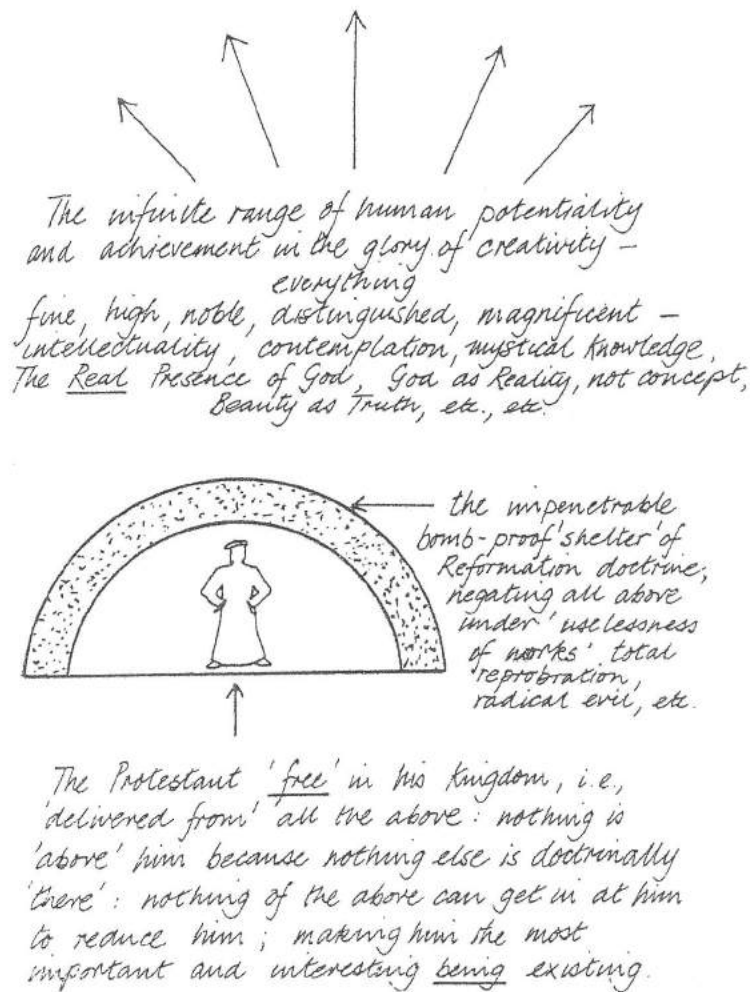 The infinite range of human potentiality
and achievement in the glory of creativity –
everything
fine, high, noble, distinguished, magnificent –
intellectuality, contemplation, mystical knowledge,
The Real Presence of God, God as Reality, not concept,
Beauty as Truth, etc., etc.
the impenetrable
bomb-proof 'shelter' of
Reformation doctrine,
negating all above
under 'uselessness
of works' total
reprobration,
radical evil, etc.
The Protestant 'free' in his Kingdom, i.e.,
'delivered from' all the above: nothing is
'above' him because nothing else is doctrinally
'there': nothing of the above can get in at him
to reduce him; making him the most
important and interesting being existing.